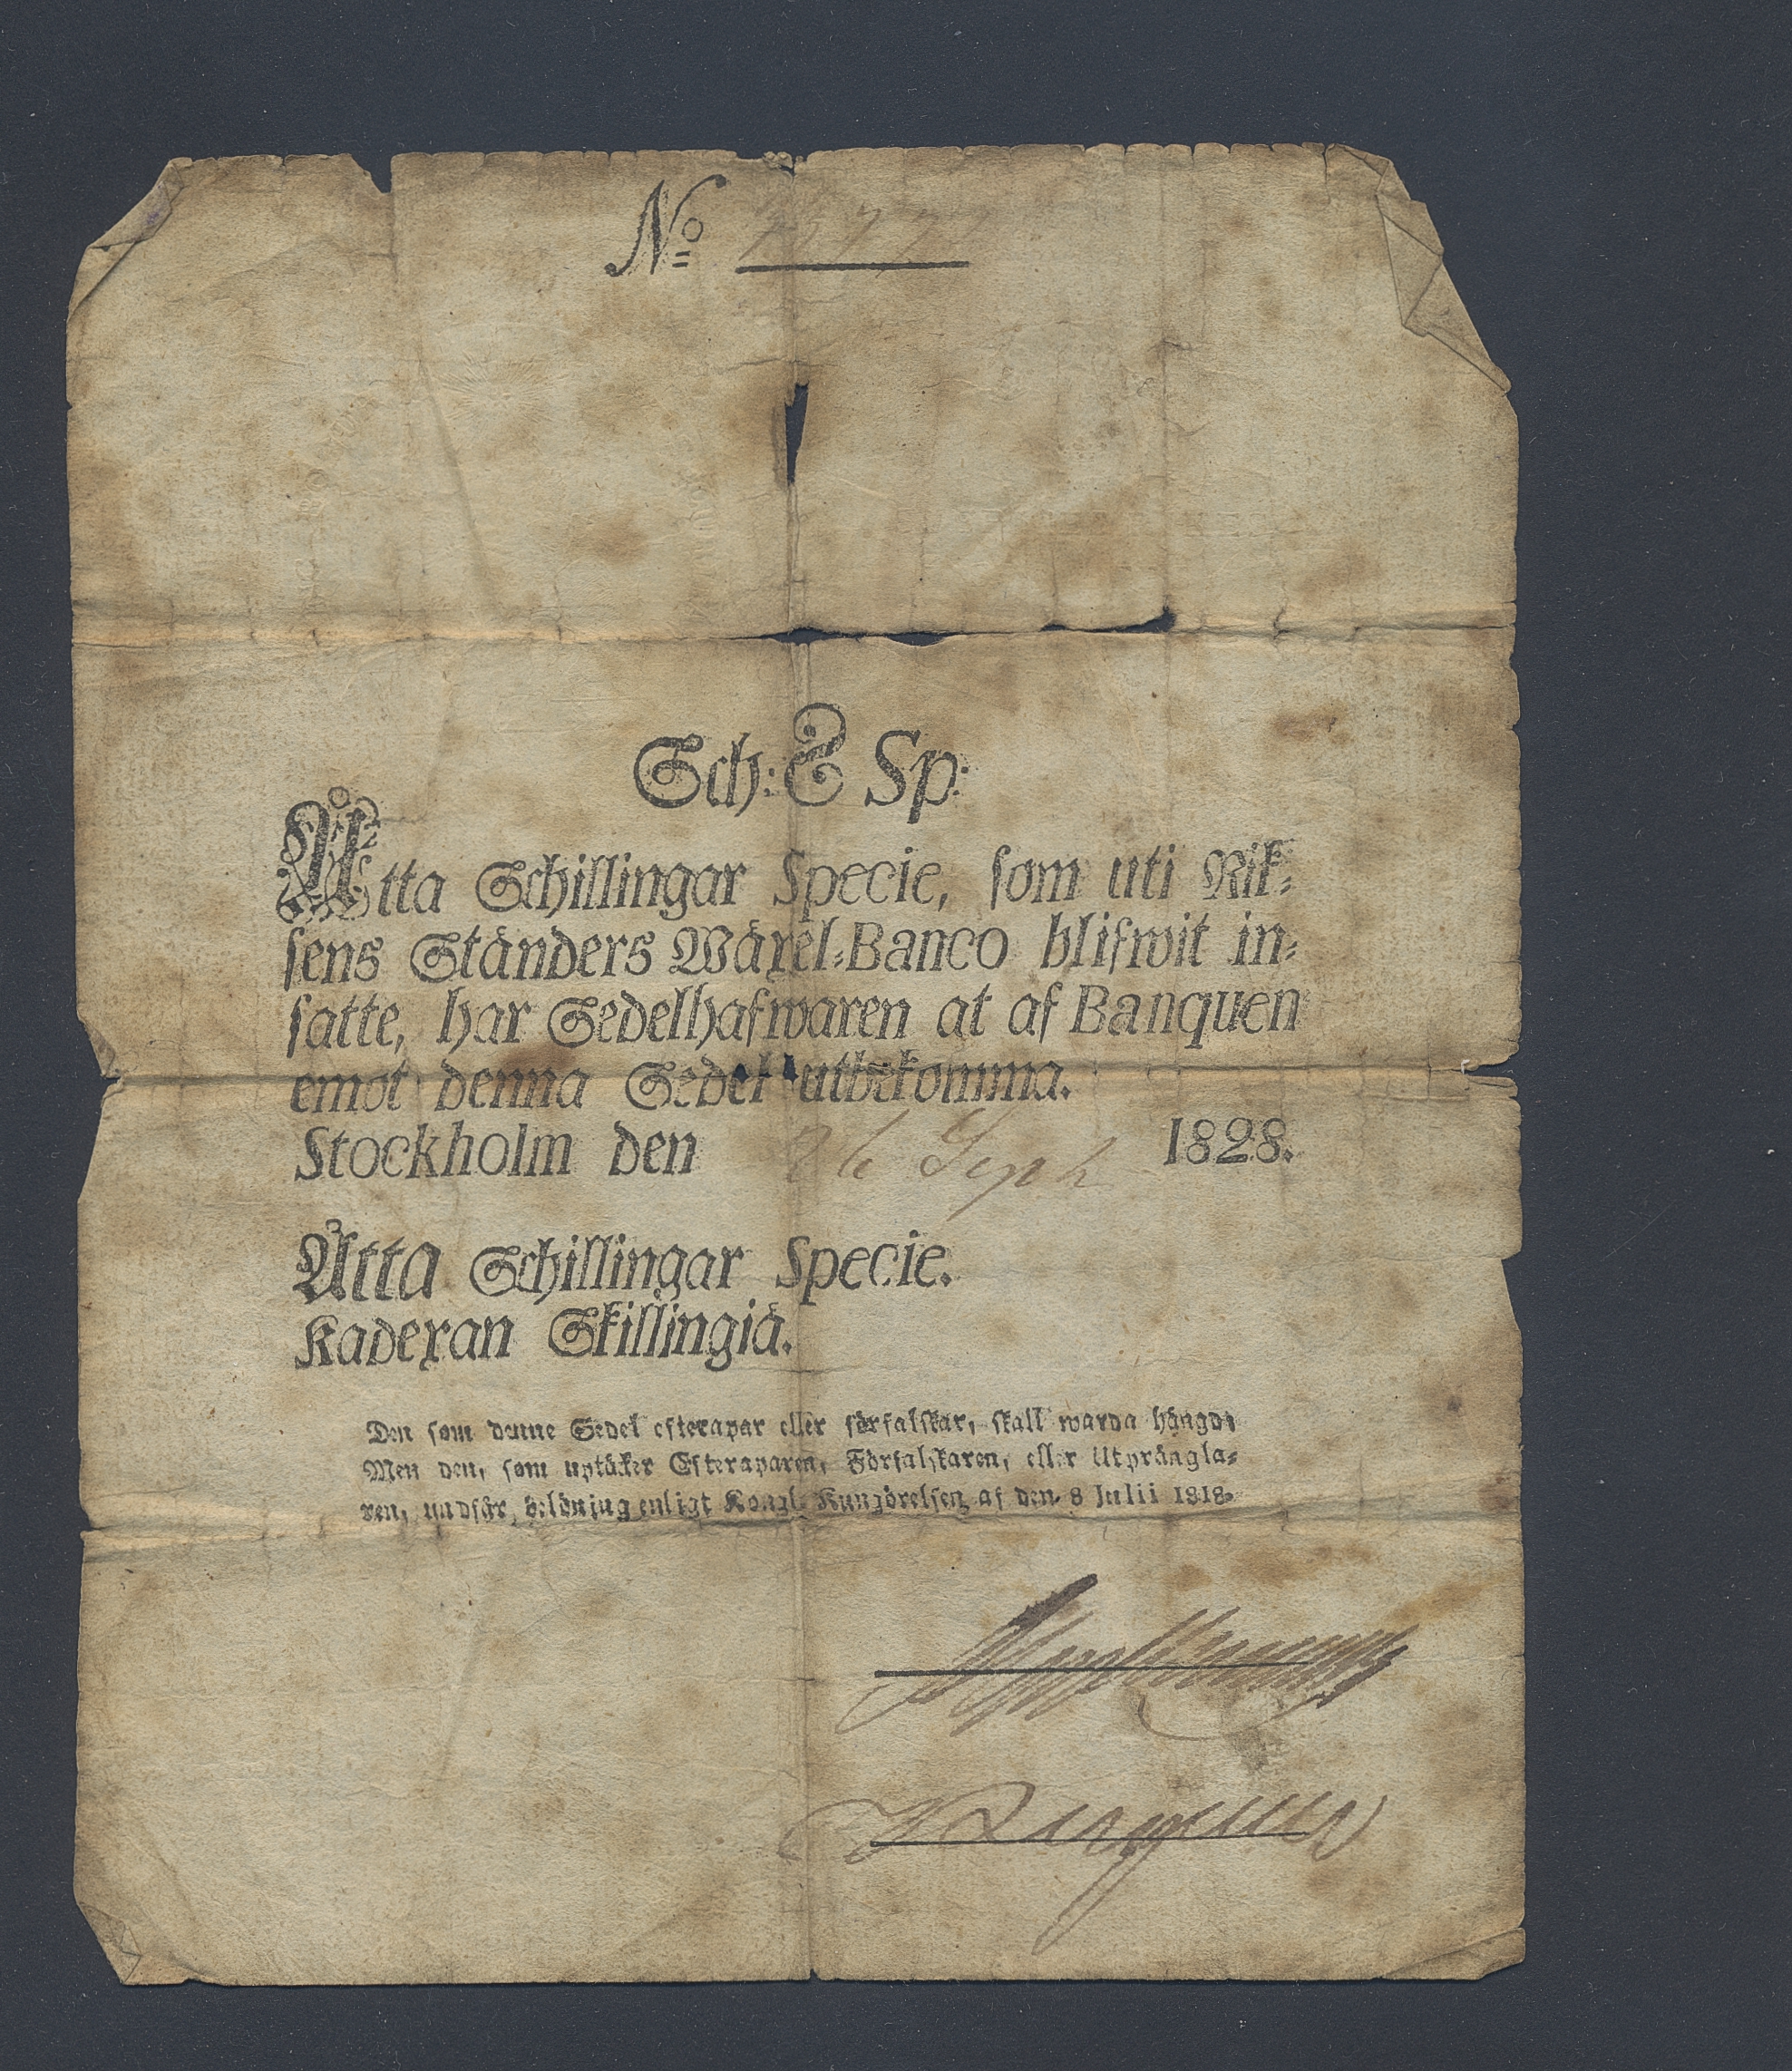 No
Sch: 8 Sp:
Åtta Schillingar Specie, som uti Rik-
sens Ständers Wäxel-Banco blifwit in-
satte, har Sedelhafwaren at af Banquen
emot denna Sedel utbekomma.
Stockholm den 26 Sept 1828.
Åtta Schillingar Specie.
Kadexan Skillingiä.
Den som denne Sedel efterapar eller förfalskar, skall warda hängd;
Men den, som uptäcker Efteraparen, Förfalskaren, eller Utprångla-
ren, undfår belöning enligt Kongl. Kungörelsen af den 8 Julii 1818.